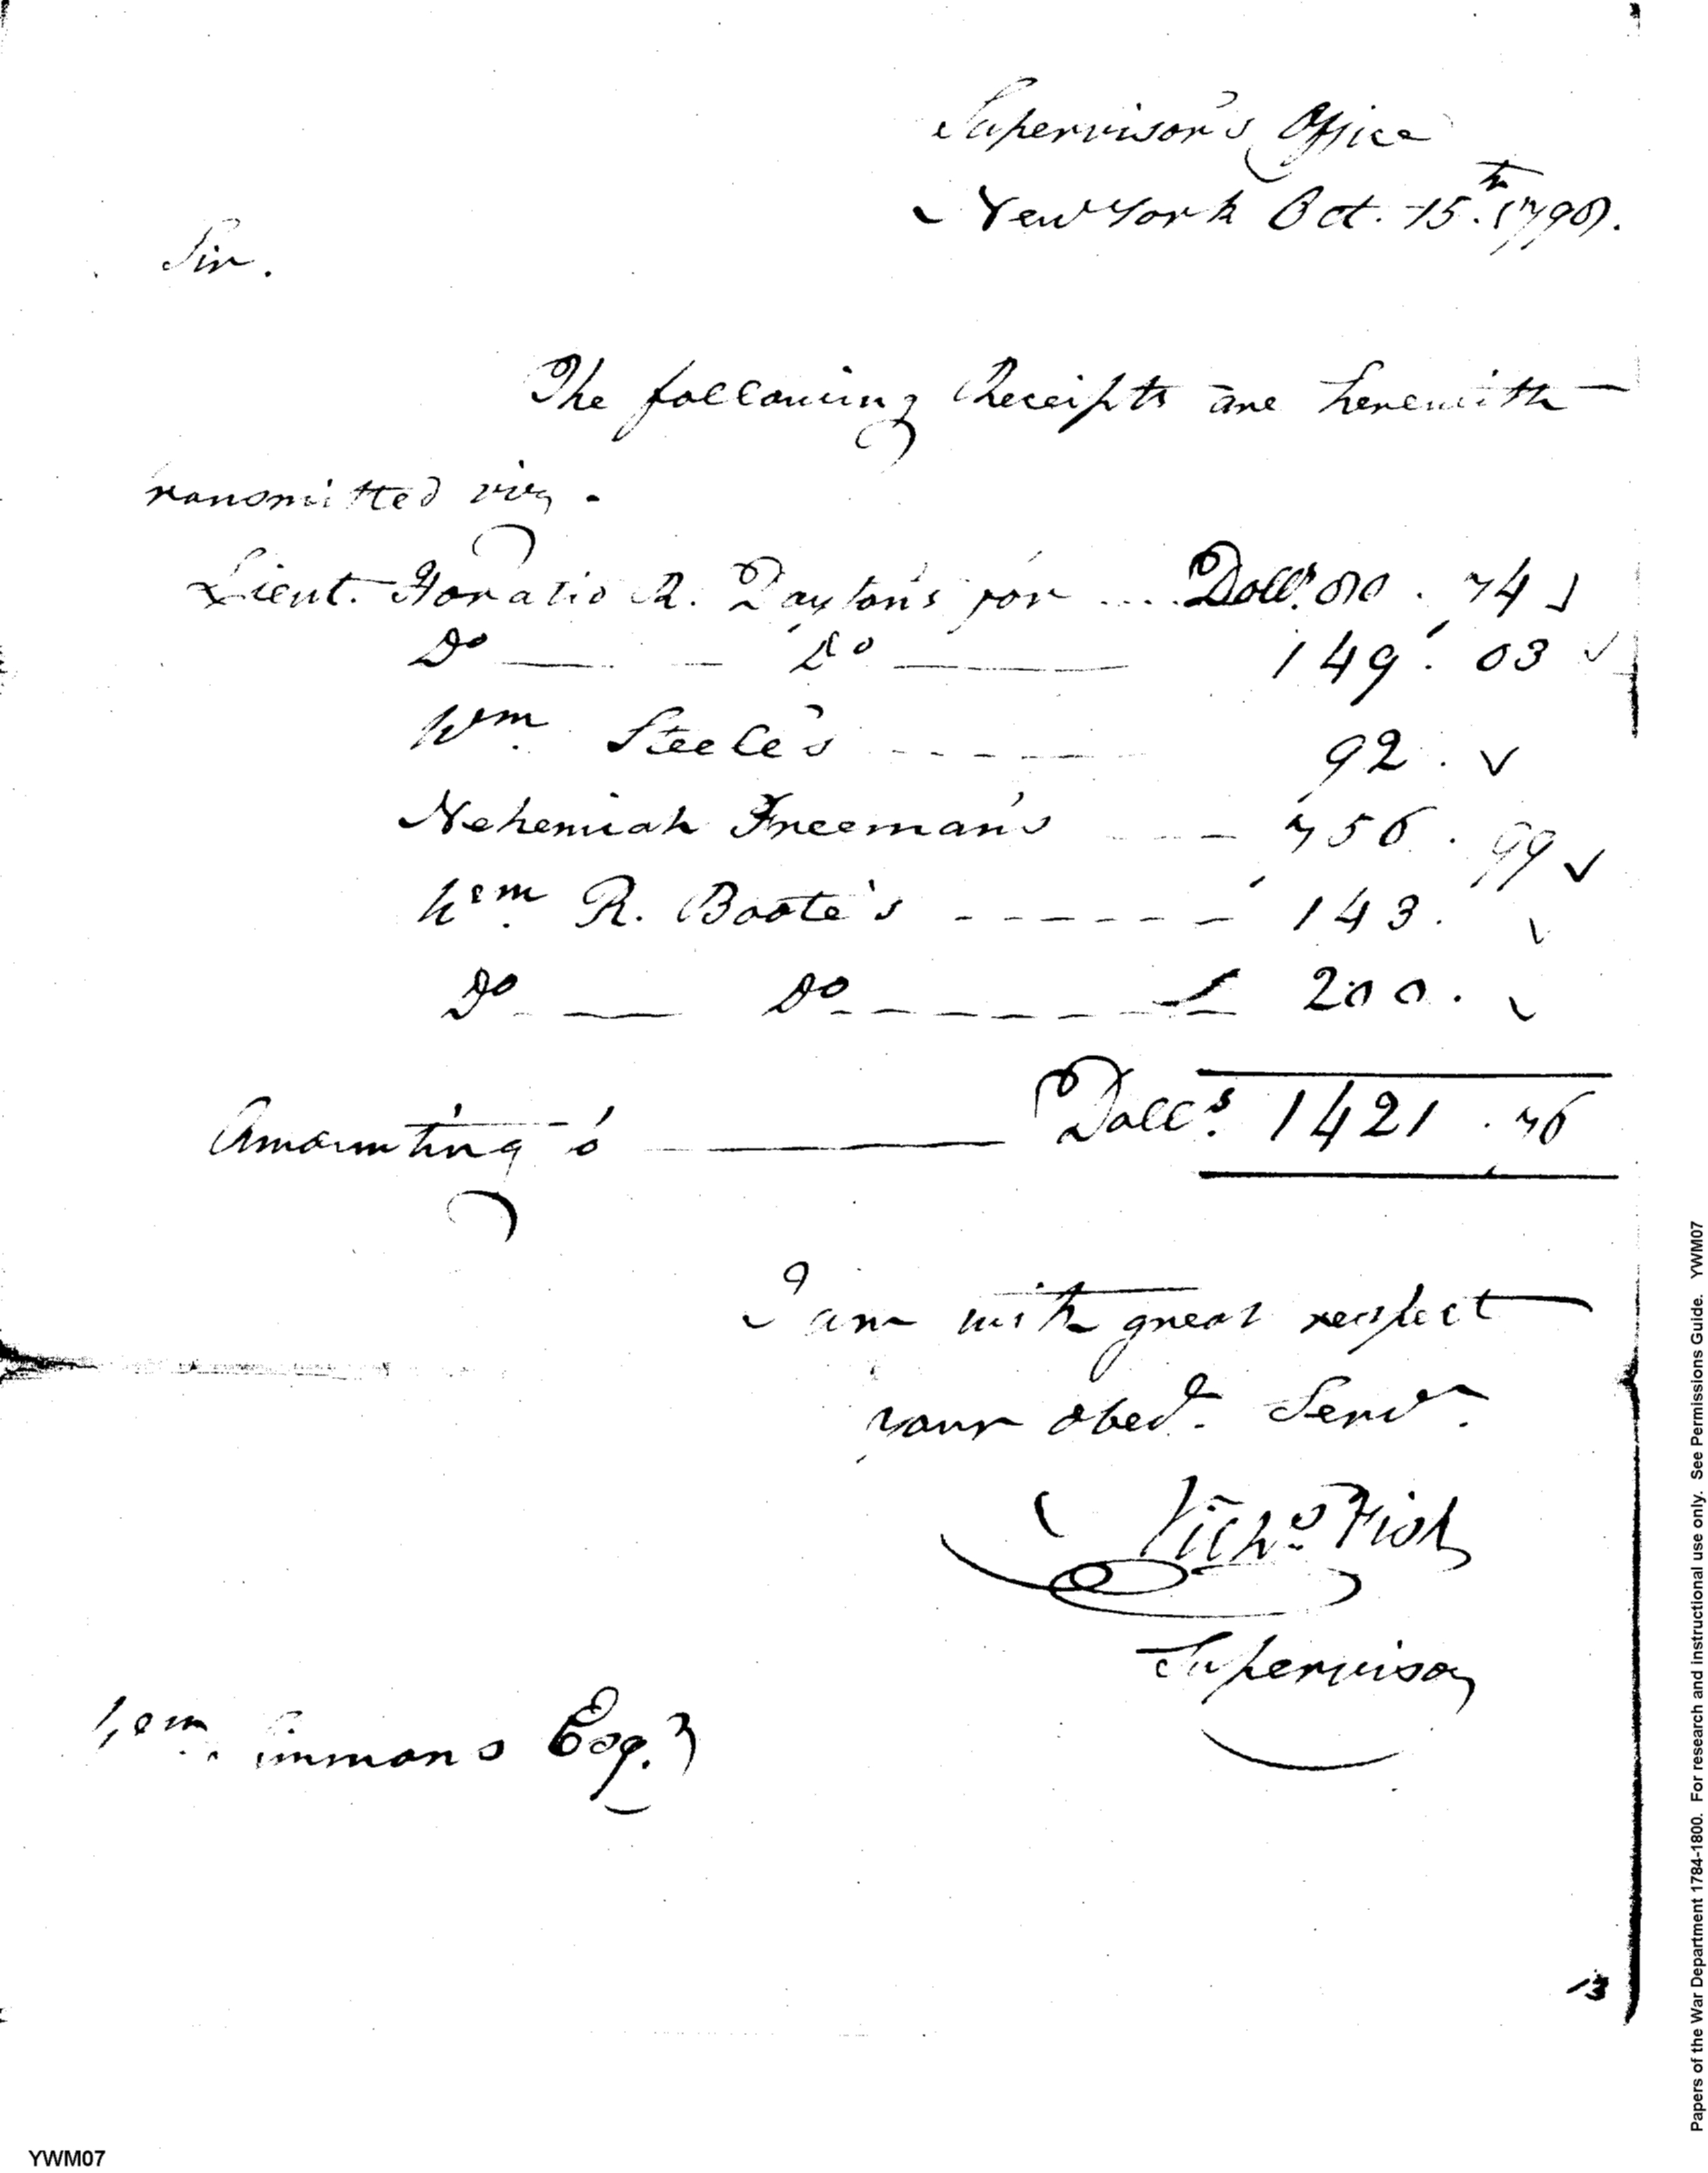 Supervisor's Office
New York Oct. 15.th 1798.
Sir.
The following Receipts are herewith
transmitted viz.
Lieut. Horatio R. Dayton's for .... Doll.s 80 . 74
Do Do 149 . 03
Wm. Steele's 92 .
Nehemiah Freeman's 756 . 99
Wm. R. Boote's 143 .
Do Do 200 .
Amounting to Doll.s 1421 . 76
I am with great respect
your obed.t Serv.t
Nichs. Fish
Supervisor
Wm. Simmons Esq.r
13
YWM07
Papers of the War Department 1784-1800. For research and instructional use only. See Permissions Guide. YWM07